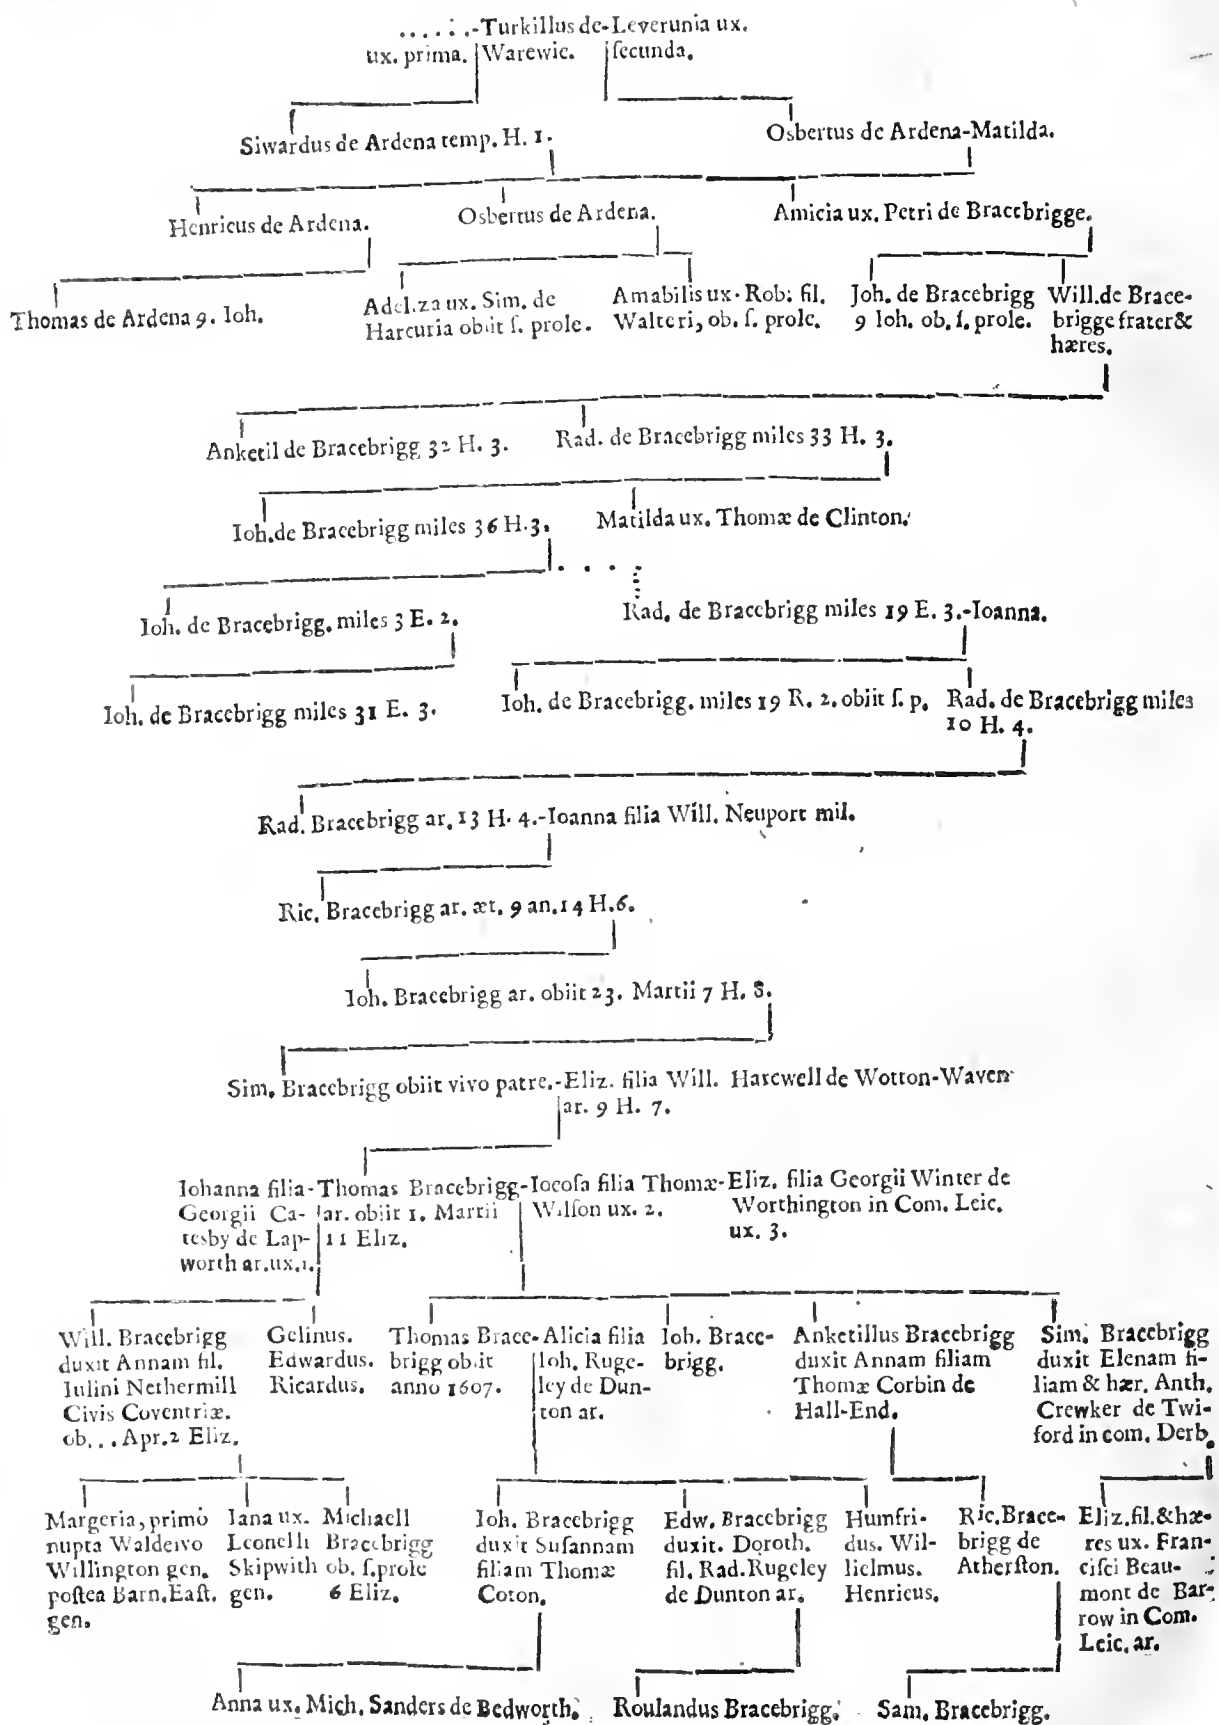 . . . . . .-Turkillus de-Leverunia ux.
ux. prima. Warewic. ſecunda.
Siwardus de Ardena temp. H. 1.
Osbertus de Ardena-Matilda.
Henricus de Ardena.
Osbertus de Ardena.
Amicia ux. Petri de Bracebrigge.
Thomas de Ardena 9. Ioh.
Adel.za ux. Sim. de
Harcuria obiit ſ. prole.
Amabilis ux. Rob: fil.
Walteri, ob. ſ. prole.
Joh. de Bracebrigg
9 Ioh. ob. ſ. prole.
Will. de Brace-
brigge frater &
hæres.
Anketil de Bracebrigg 32 H. 3.
Rad. de Bracebrigg miles 33 H. 3.
Ioh. de Bracebrigg miles 36 H. 3.
Matilda ux. Thomæ de Clinton.
Ioh. de Bracebrigg. miles 3 E. 2.
Rad. de Bracebrigg miles 19 E. 3.-Ioanna.
Ioh. de Bracebrigg miles 31 E. 3.
Ioh. de Bracebrigg. miles 19 R. 2. obiit ſ. p.
Rad. de Bracebrigg miles
10 H. 4.
Rad. Bracebrigg ar. 13 H. 4.-Ioanna filia Will. Neuport mil.
Ric. Bracebrigg ar. æt. 9 an. 14 H. 6.
Ioh. Bracebrigg ar. obiit 23. Martii 7 H. 8.
Sim. Bracebrigg obiit vivo patre.-Eliz. filia Will. Harewell de Wotton-Waven
ar. 9 H. 7.
Iohanna filia-
Georgii Ca-
tesby de Lap-
worth ar. ux. 1.
Thomas Bracebrigg-
ar. obiit 1. Martii
11 Eliz.
Iocoſa filia Thomæ-
Wilſon ux. 2.
Eliz. filia Georgii Winter de
Worthington in Com. Leic.
ux. 3.
Will. Bracebrigg
duxit Annam fil.
Iulini Nethermill
Civis Coventriæ.
ob. . . Apr. 2 Eliz.
Gelinus.
Edwardus.
Ricardus.
Thomas Brace-
brigg ob.it
anno 1607.
Alicia filia
Ioh. Ruge-
ley de Dun-
ton ar.
Ioh. Brace-
brigg.
Anketillus Bracebrigg
duxit Annam filiam
Thomæ Corbin de
Hall-End.
Sim. Bracebrigg
duxit Elenam fi-
liam & hær. Anth.
Crewker de Twi-
ford in com. Derb.
Margeria, primò
nupta Waldeivo
Willington gen.
poſtea Barn. Eaſt.
gen.
Iana ux.
Leonelli
Skipwith
gen.
Michaell
Bracebrigg
ob. ſ. prole
6 Eliz.
Ioh. Bracebrigg
duxit Suſannam
filiam Thomæ
Coton.
Edw. Bracebrigg
duxit. Doroth.
fil. Rad. Rugeley
de Dunton ar.
Humfri-
dus. Wil-
lielmus.
Henricus.
Ric. Brace-
brigg de
Atherſton.
Eliz. fil. & hæ-
res ux. Fran-
ciſci Beau-
mont de Bar-
row in Com.
Leic. ar.
Anna ux. Mich. Sanders de Bedworth.
Roulandus Bracebrigg.
Sam. Bracebrigg.